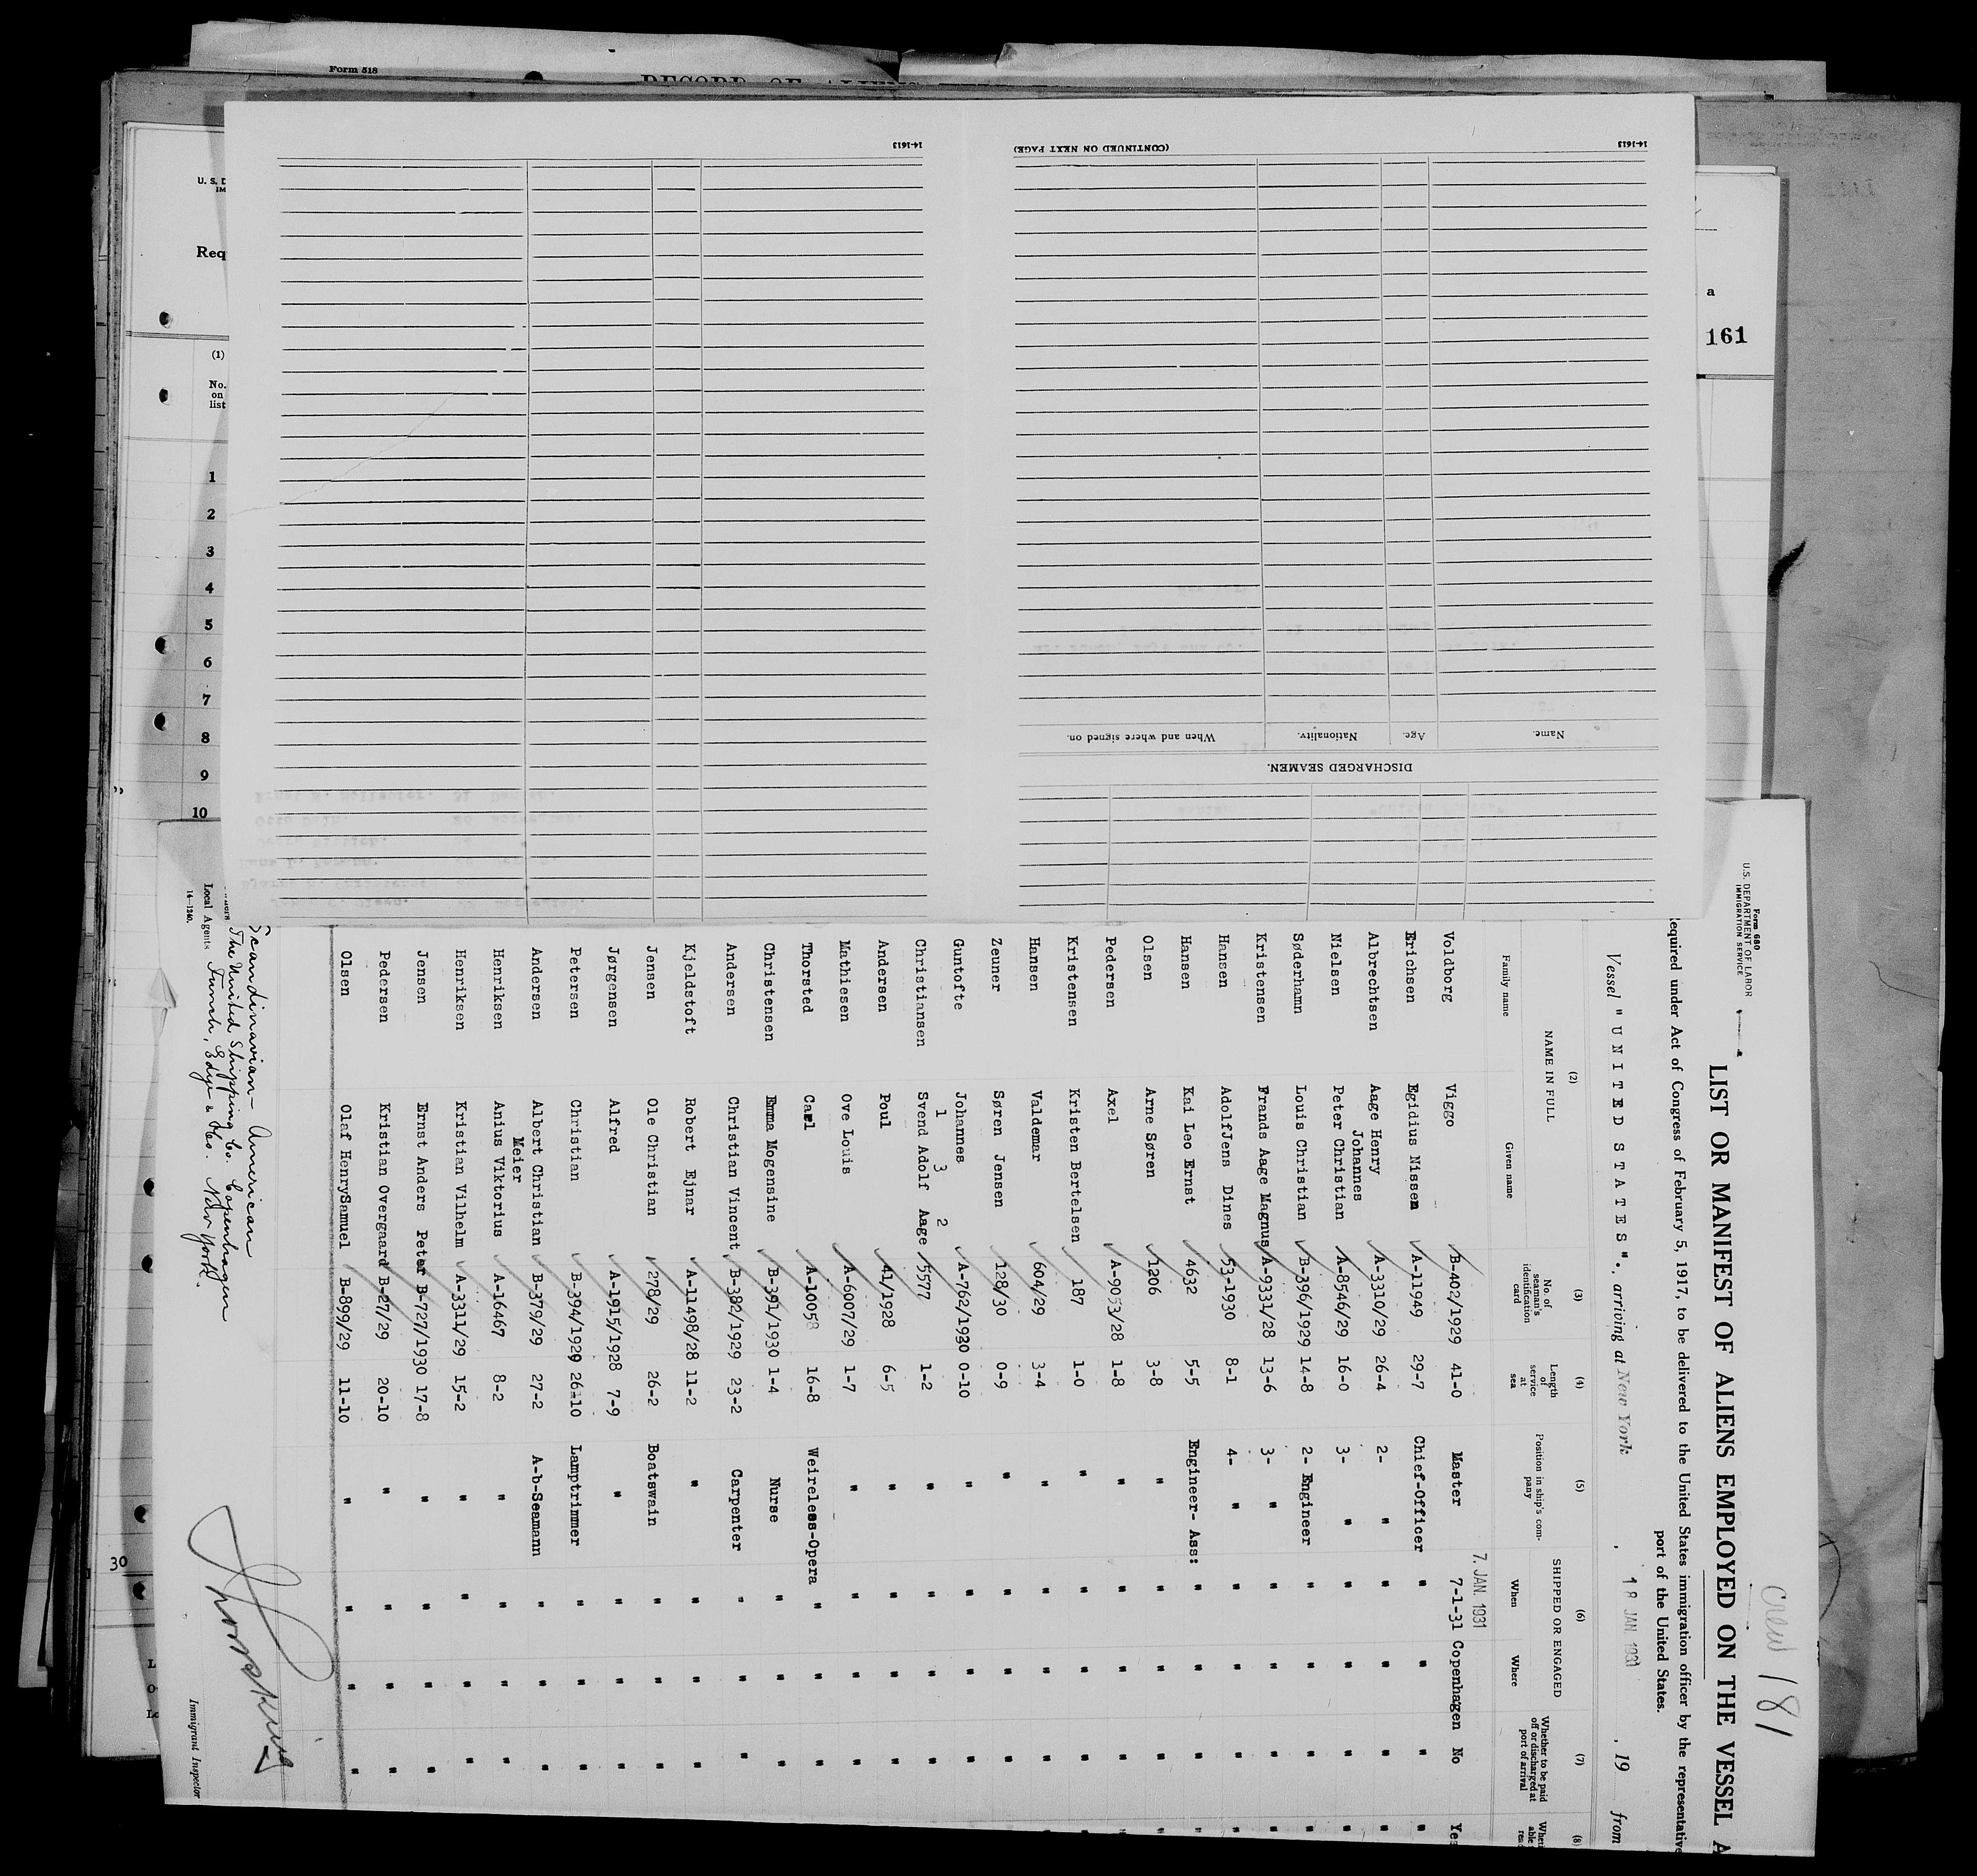 Form 518
RECORD OF ALIENS
U. S. D
IM
Req
(1)
No.
on
list
1
2
3
4
5
6
7
8
9
10
30
a
161
14-1613
(CONTINUED ON NEXT PAGE)
14-1613
Name.
Age.
Nationality.
When and where signed on.
DISCHARGED SEAMEN.
Form 680
U.S. DEPARTMENT OF LABOR
IMMIGRATION SERVICE
crew 181
LIST OR MANIFEST OF ALIENS EMPLOYED ON THE VESSEL A
equired under Act of Congress of February 5, 1917, to be delivered to the United States immigration officer by the representative
port of the United States.
Vessel "UNITED STATES"., arriving at New York, 18 JAN 1931, 19 from
(2) (3) (4) (5) (6) (7) (8)
NAME IN FULL
Family name Given name
No. of seaman's identification card
Length of service at sea
Position in ship's com-pany
SHIPPED OR ENGAGED
When Where
Whether to be paid off or discharged at port of arrival
7. JAN. 1931
Voldborg Viggo B-402/1929 41-0 Master 7-1-31 Copenhagen No Yes
Erichsen Egidius Nissen A-11949 29-7 Chief-Officer " " " "
Albrechtsen Aage Henry Johannes A-3310/29 26-4 2- " " " " "
Nielsen Peter Christian A-8546/29 16-0 3- " " " " "
Søderhamn Louis Christian B-396/1929 14-8 2- Engineer " " " "
Kristensen Frands Aage Magnus A-9331/28 13-6 3- " " " " "
Hansen Adolf Jens Dines 53-1930 8-1 4- " " " " "
Hansen Kai Leo Ernst 4632 5-5 Engineer- Ass: " " " "
Olsen Arne Søren 1206 3-8 " " " " "
Pedersen Axel A-9053/28 1-8 " " " " "
Kristensen Kristen Bertelsen 187 1-0 " " " " "
Hansen Valdemar 604/29 3-4 " " " " "
Zeuner Søren Jensen 128/30 0-9 " " " "
Guntofte Johannes A-762/1930 0-10 " " " "
1 3 2
Christiansen Svend Adolf Aage 5577 1-2 " " " "
Andersen Poul 41/1928 6-5 " " " "
Mathiesen Ove Louis A-6007/29 1-7 " " " "
Thorsted Carl A-10058 16-8 Weireless-Opera " " "
Christensen Emma Mogensine B-391/1930 1-4 Nurse " " "
Andersen Christian Vincent B-382/1929 23-2 Carpenter " " "
Kjeldstoft Robert Ejnar A-11498/28 11-2 " " " "
Jensen Ole Christian 278/29 26-2 Boatswain " " "
Jørgensen Alfred A-1915/1928 7-9 " " " "
Petersen Christian B-394/1929 26-10 Lamptrimmer " " "
Andersen Albert Christian Meier B-379/29 27-2 A-b-Seamann " " "
Henriksen Anius Viktorius A-16467 8-2 " " " "
Henriksen Kristian Vilhelm A-3311/29 15-2 " " " "
Jensen Ernst Anders Peter B-727/1930 17-8 " " " "
Pedersen Kristian Overgaard B-27/29 20-10 " " " "
Olsen Olaf HenrySamuel B-899/29 11-10 " " " "
Scandinavian-American
The United Shipping Co. Copenhagen
Local Agents Funch, Edye & Co. New York.
14-1240.
Immigrant Inspector